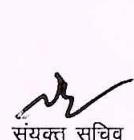 संयुक्त सचिव